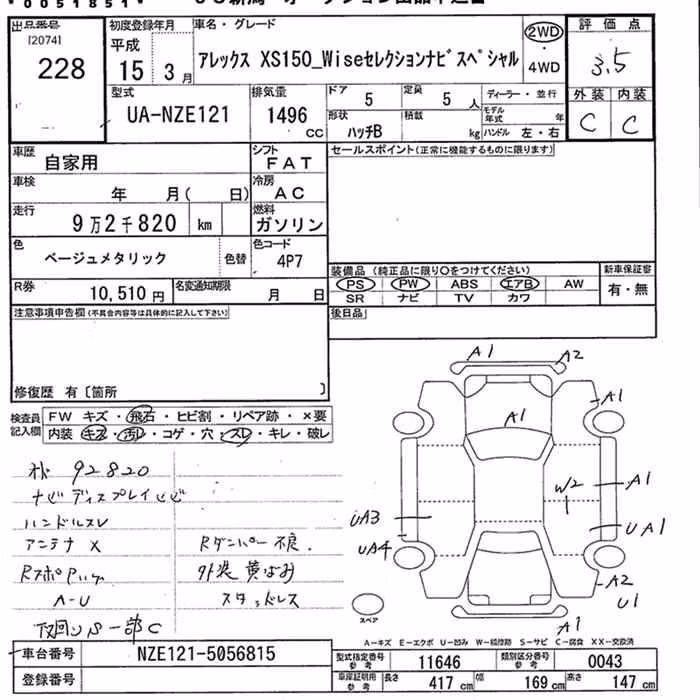 *0051851*
出品番号 初度登録年月 車名・グレード 2WD 評価点
[2074] 平成
228 15 3月 アレックス XS150_Wiseセレクションナビスペシャル ・4WD 3.5
型式 排気量 ドア 5 定員 5人 ディーラー・並行 外装 内装
UA-NZE121 1496cc 形状 ハッチB 積載 kg モデル年式 年 ハンドル 左・右 C C
車歴 自家用 シフト FAT セールスポイント(正常に機能するものに限ります)
車検 年 月( 日) 冷房 AC
走行 9万2千820 km 燃料 ガソリン
色 ベージュメタリック 色替 色コード 4P7
装備品(純正品に限り○をつけてください) 新車保証書
R券 10,510円 名変通知期限 月 日 PS PW ABS エアB AW 有・無
SR ナビ TV カワ
注意事項申告欄(不具合内容等は具体的に記入して下さい) 後日品
修復歴 有〔箇所 〕
検査員記入欄 FW キズ・飛石・ヒビ割・リペア跡・×要
内装 キズ・汚レ・コゲ・穴・スレ・キレ・破レ
A1 A2
A1 A1
92820
ナビディスプレイ
W2 A1
ハンドルスレ
UA3 UA1
アンテナ X Rダンパー不良.
UA4
外装黄ばみ
A2
A-U スタッドレス
U1
下回りS一部C
スペア A1
A-キズ E-エクボ U-凹み W-補修跡 S-サビ C-腐食 XX-交換済
車台番号 NZE121-5056815 型式指定番号 参考 11646 類別区分番号 参考 0043
登録番号 車庫証明用 参考 長さ 417cm 幅 169cm 高さ 147cm